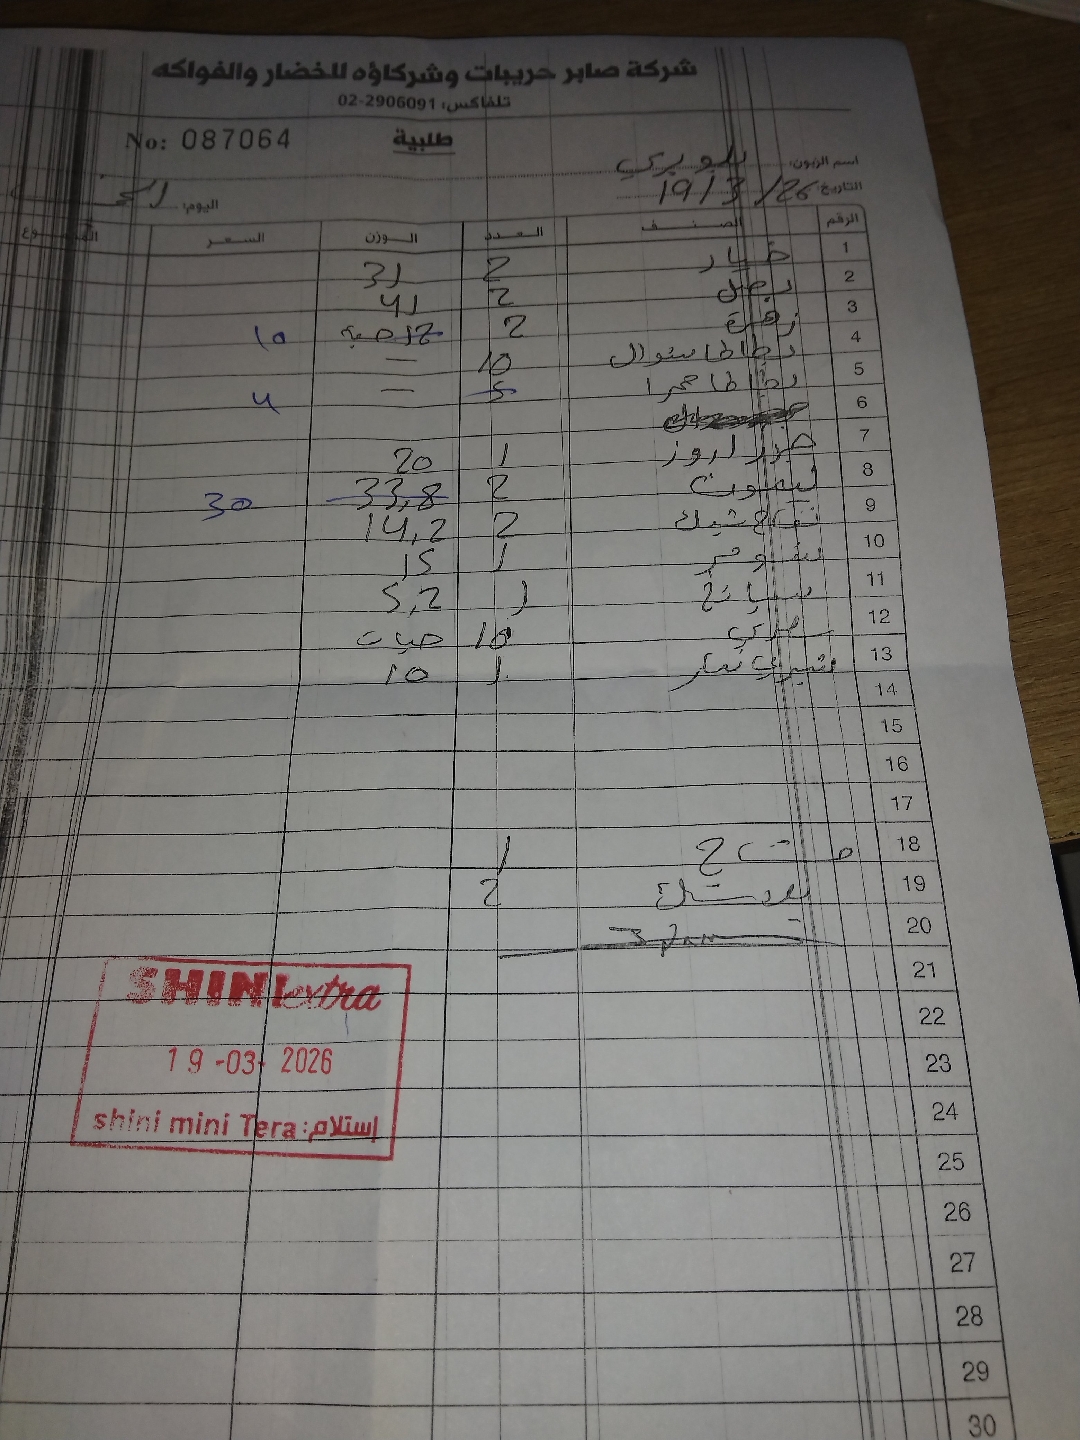 شركة صابر حريبات وشركاؤه للخضار والفواكه
تلفاكس: 02-2906091
No: 087064 طلبية
اسم الزبون:
التاريخ: 19/3/26 اليوم:
الرقم الصنف العدد الوزن السعر المجموع
1 خيار 2 31
2 بصل 2 41
3 زهرة 2 12 حبة 10
4 بطاطا شوال 10 =
5 بطاطا حمرا 5 = 4
6
7 1 20
8 ليمون 2 33,8 30
9 تفاح 2 14,2
10 1 15
11 سبانخ 1 5,2
12 10 حبات
13 شيري 1 10
14
15
16
17
18 1
19 2
20
21
22
23
24
25
26
27
28
29
30
SHINI extra
19-03-2026
shini mini Tera :إستلام